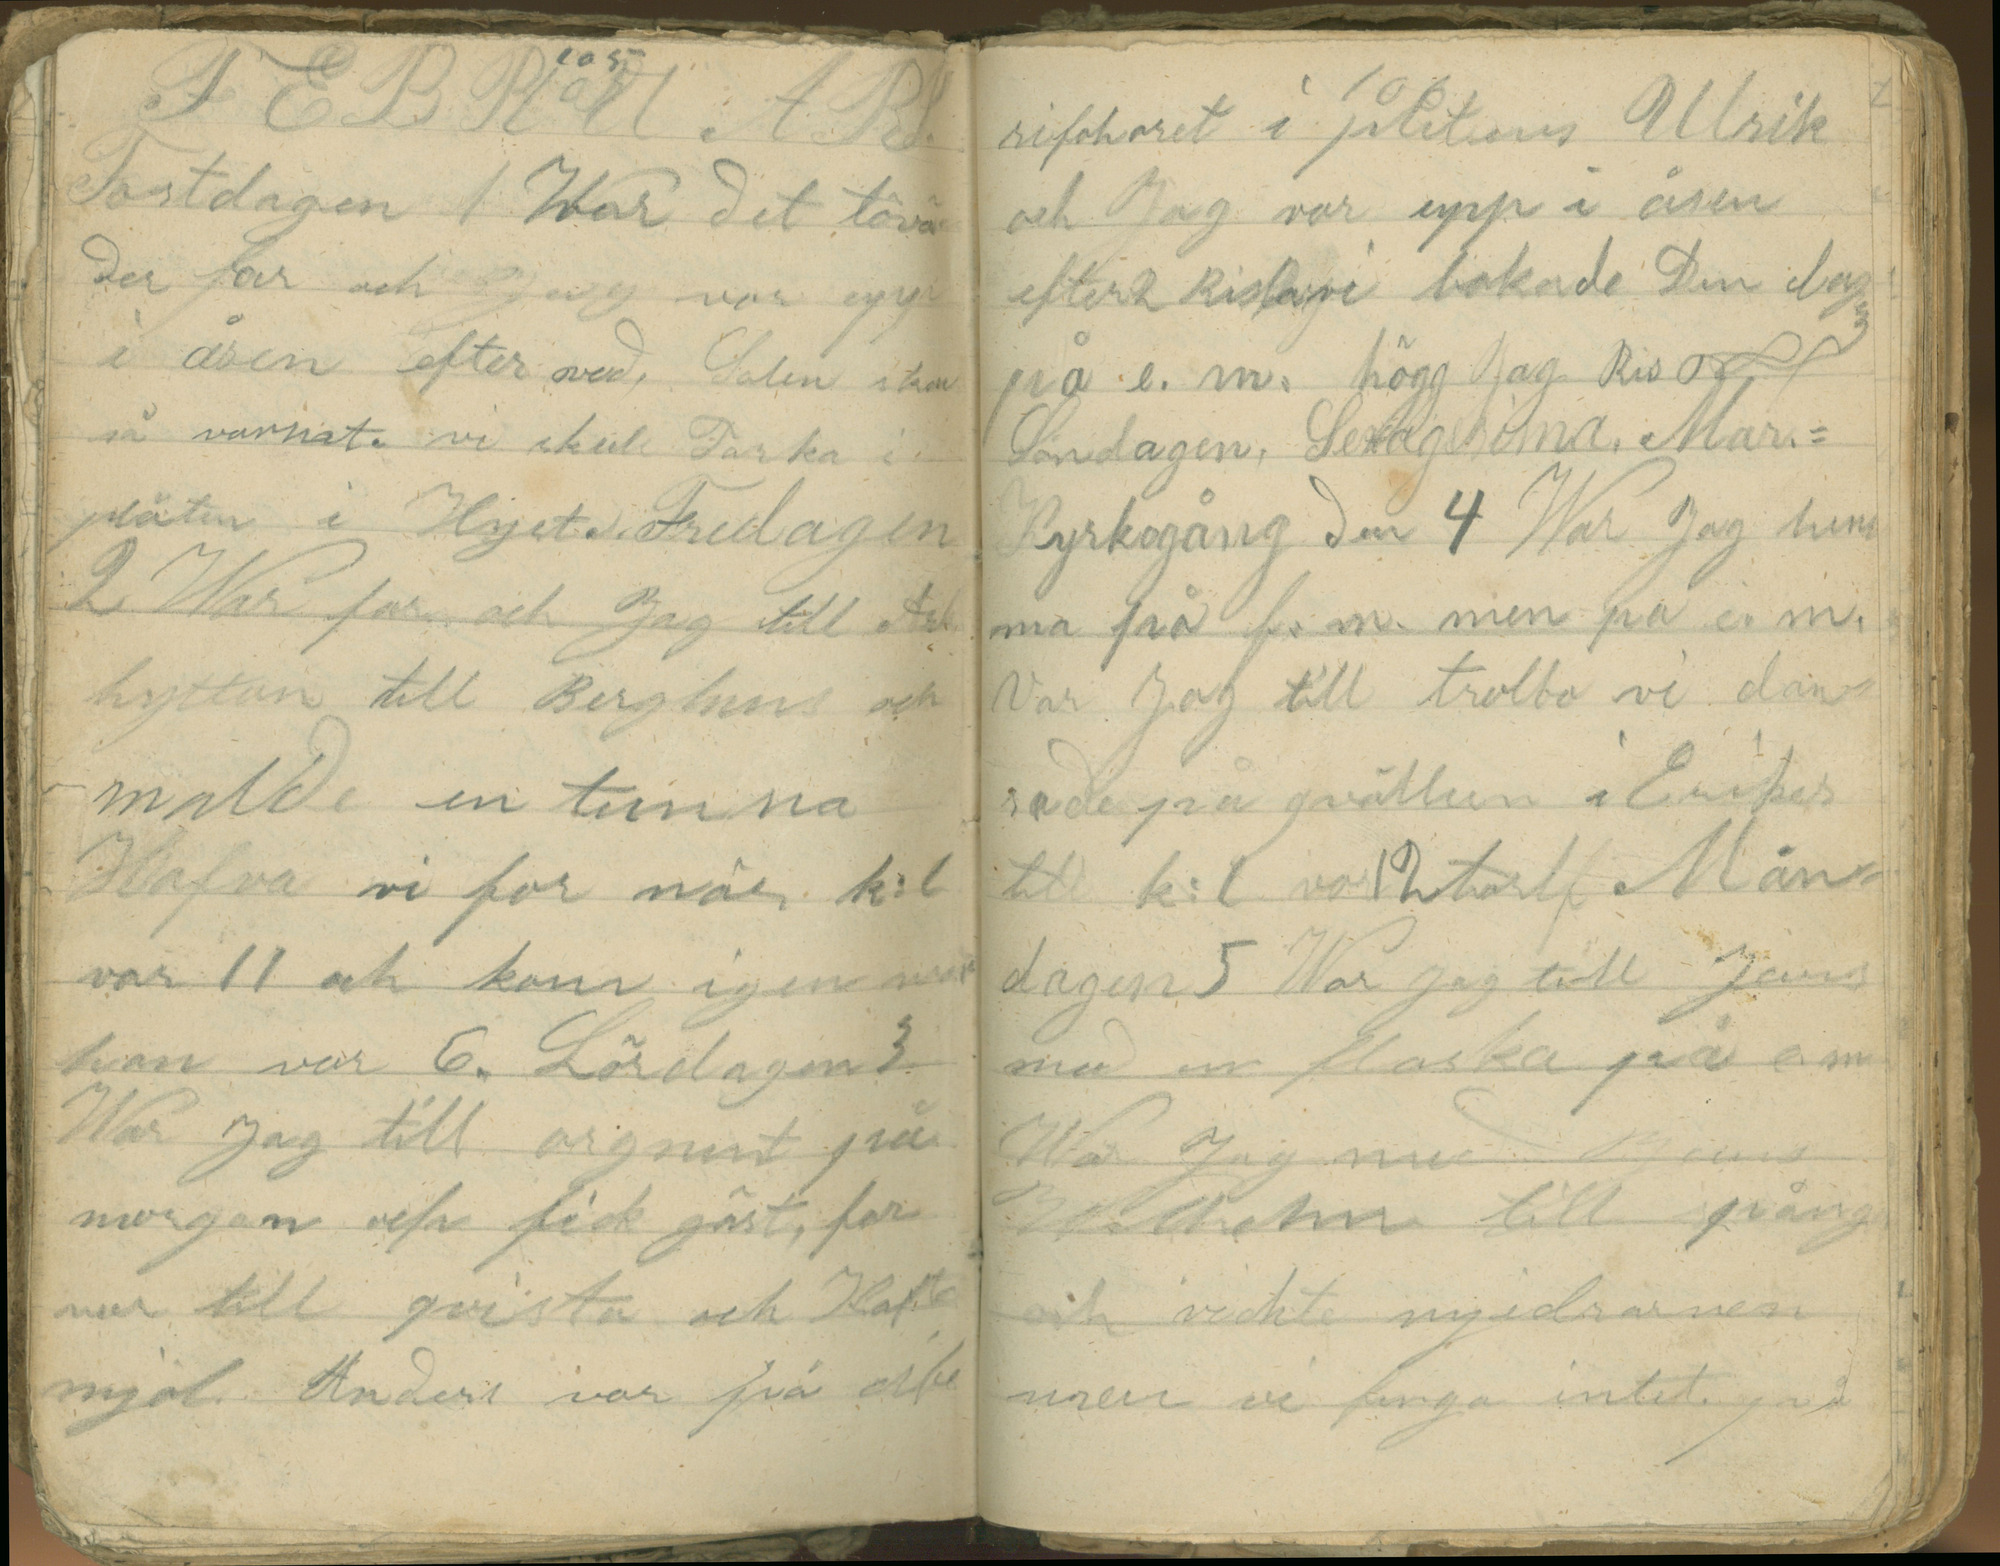 105
FEBRUARI.
Torstdagen 1 War det tövä
der far och Jag var upp
i åsen efter ved, Solen sken
så varnat. vi skule Torka i
plåten i Hyet. Fredagen
2 War far och Jag till Ask
hyttan till Bergluns och
malde en tunna
Hafva vi for när k:l
var 11 och kom igen när
han var 6. Lördagen 3
War Jag till orgnest på
morgon och fick gäst, far
var till qvista och Hafte
mjöl. Anders var på arbe
106
i Ullrik
och Jag var upp i åsen
efter 2 Rislavi bakade Den dagen
på e. m. högg Jag Ris
Söndagen, Sexagesima. Mar.=
Kyrkogång den 4 War Jag hem
ma på f. m. men på e. m.
Var Jag till trolbo vi dan=
sade på qvällen i Erikers
till k:l var 12 tolf Mån=
dagen 5 War Jag till Jans
med en flaska på e m
War Jag med Jans
Wilhelm till spång
och vickte nyidrarven
men vi finga intet. på